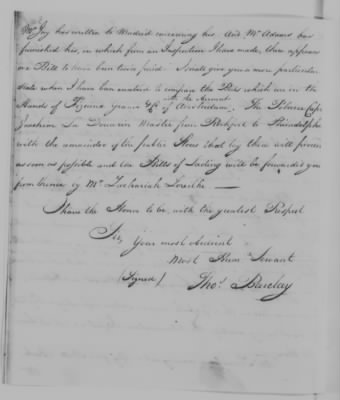 Mr Jay has written to Madrid concerning his. And Mr Adams has
furnished his, in which from an Inspection I have made, there appears
one Bill to have been twice paid. I shall give you a more particular
state when I have been enabled to compare the Bills which are in the
with the Account
Hands of Fizeaux Grand & Co of Amsterdam. The Polacre Capt
Joachim La Master from Rochfort to Philadelphia
with the remainder of the public Stores that lay there will proceed
as soon as possible and the Bills of Lading will be forwarded you
from thence by Mr Zachariah Loreilhe —
I have the Honor to be, with the greatest Respect
Sir,
Your most obedient
Most Hum Servant
(Signed) Thos. Barclay